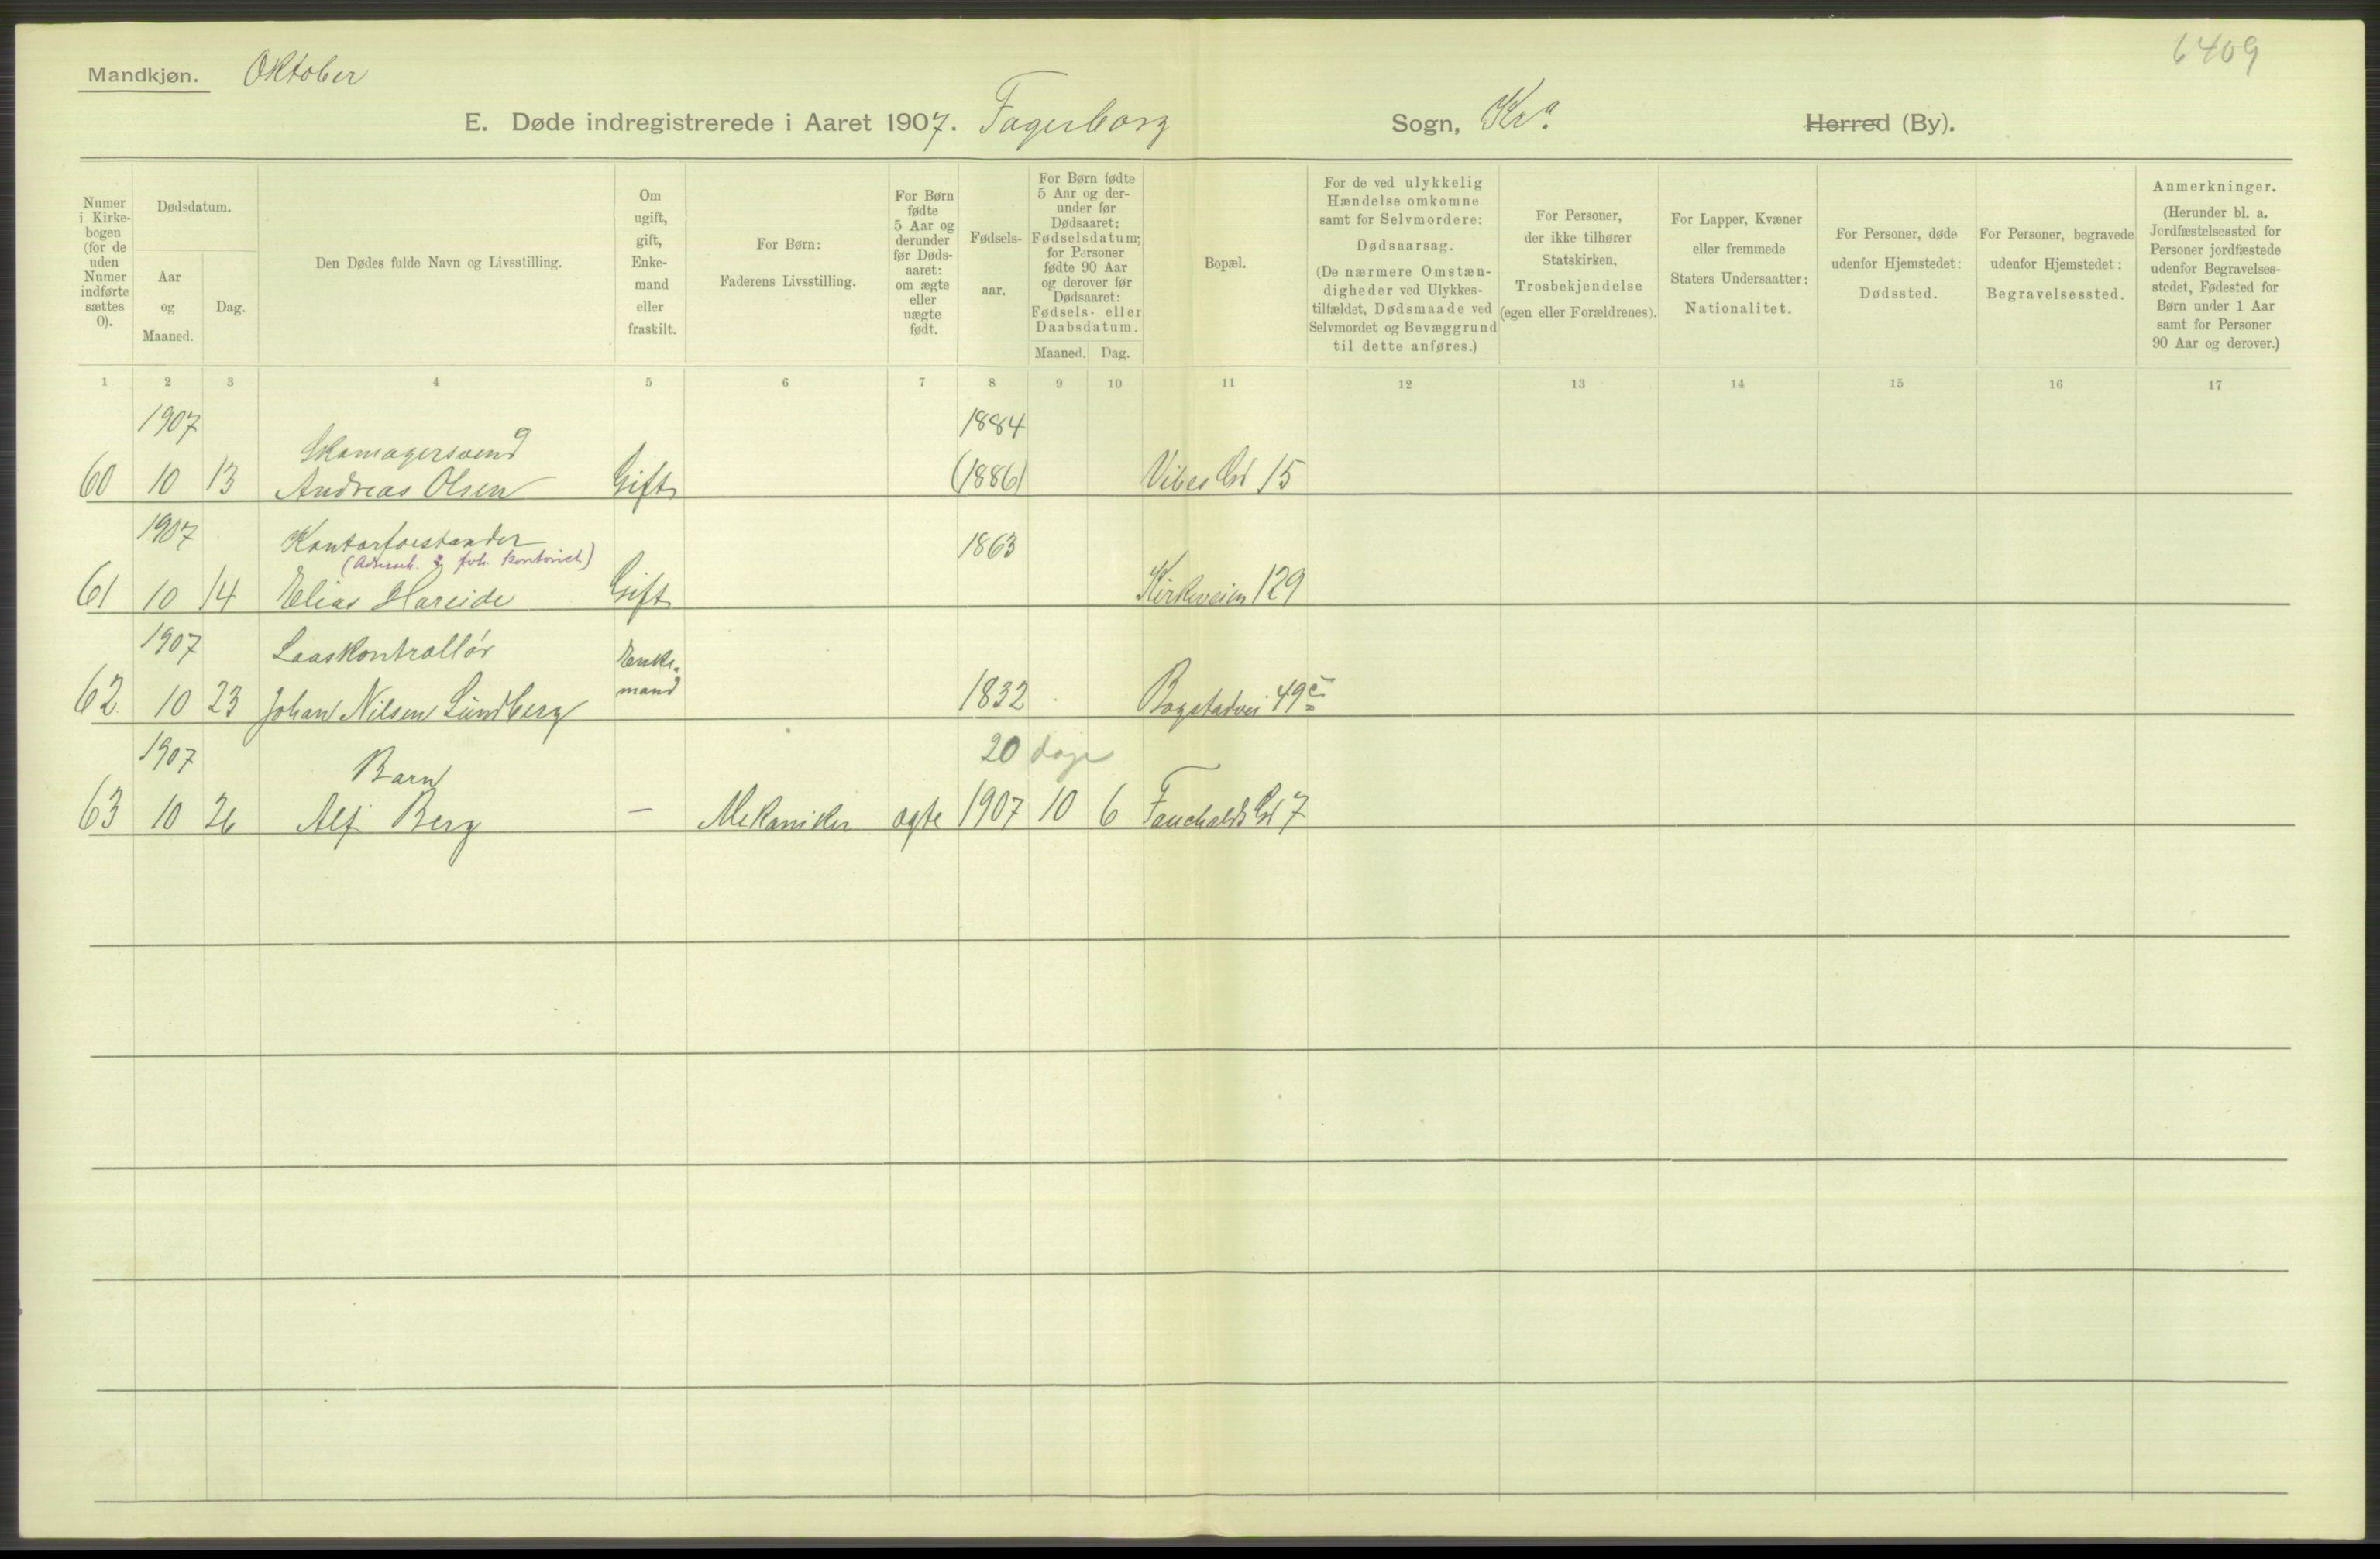 6409
Mandkjøn. Oktober
E. Døde indregistrerede i Aaret 1907. Fagerborg Sogn, Kra. Herred (By).
Numer i Kirke-bogen (for de uden Numer indførte sættes 0).
Dødsdatum.
Aar og Maaned.
Dag.
Den Dødes fulde Navn og Livsstilling.
Om ugift, gift, Enke-mand eller fraskilt.
For Børn:
Faderens Livsstilling.
For Børn fødte 5 Aar og derunder før Døds-aaret: om ægte eller uægte født.
Fødsels-aar.
For Børn fødte 5 Aar og der-under før Dødsaaret: Fødselsdatum; for Personer fødte 90 Aar og derover før Dødsaaret: Fødsels- eller Daabsdatum.
Maaned. Dag.
Bopæl.
For de ved ulykkelig Hændelse omkomne samt for Selvmordere:
Dødsaarsag.
(De nærmere Omstæn-digheder ved Ulykkes-tilfældet, Dødsmaade ved Selvmordet og Bevæggrund til dette anføres.)
For Personer, der ikke tilhører Statskirken, Trosbekjendelse (egen eller Forældrenes).
For Lapper, Kvæner eller fremmede Staters Undersaatter: Nationalitet.
For Personer, døde udenfor Hjemstedet: Dødssted.
For Personer, begravede udenfor Hjemstedet: Begravelsessted.
Anmerkninger.
(Herunder bl. a. Jordfæstelsessted for Personer jordfæstede udenfor Begravelses-stedet, Fødested for Børn under 1 Aar samt for Personer 90 Aar og derover.)
1 2 3 4 5 6 7 8 9 10 11 12 13 14 15 16 17
1907 Skomagersvend 1884
60 10 13 Andreas Olsen Gift (1886) Vibes Gd 15
1907 Kontorforstander 1863
kontorist)
61 10 14 Elias Hareide Gift Kirkeveien 129
1907 Laaskontrollør Enke-
62 10 23 Johan Nilsen Lundberg mand 1832 Bogstadvei 49c
1907 Barn 20 dage
63 10 26 Alf Berg — Mekaniker ægte 1907 10 6 Fauchalds Gd 7